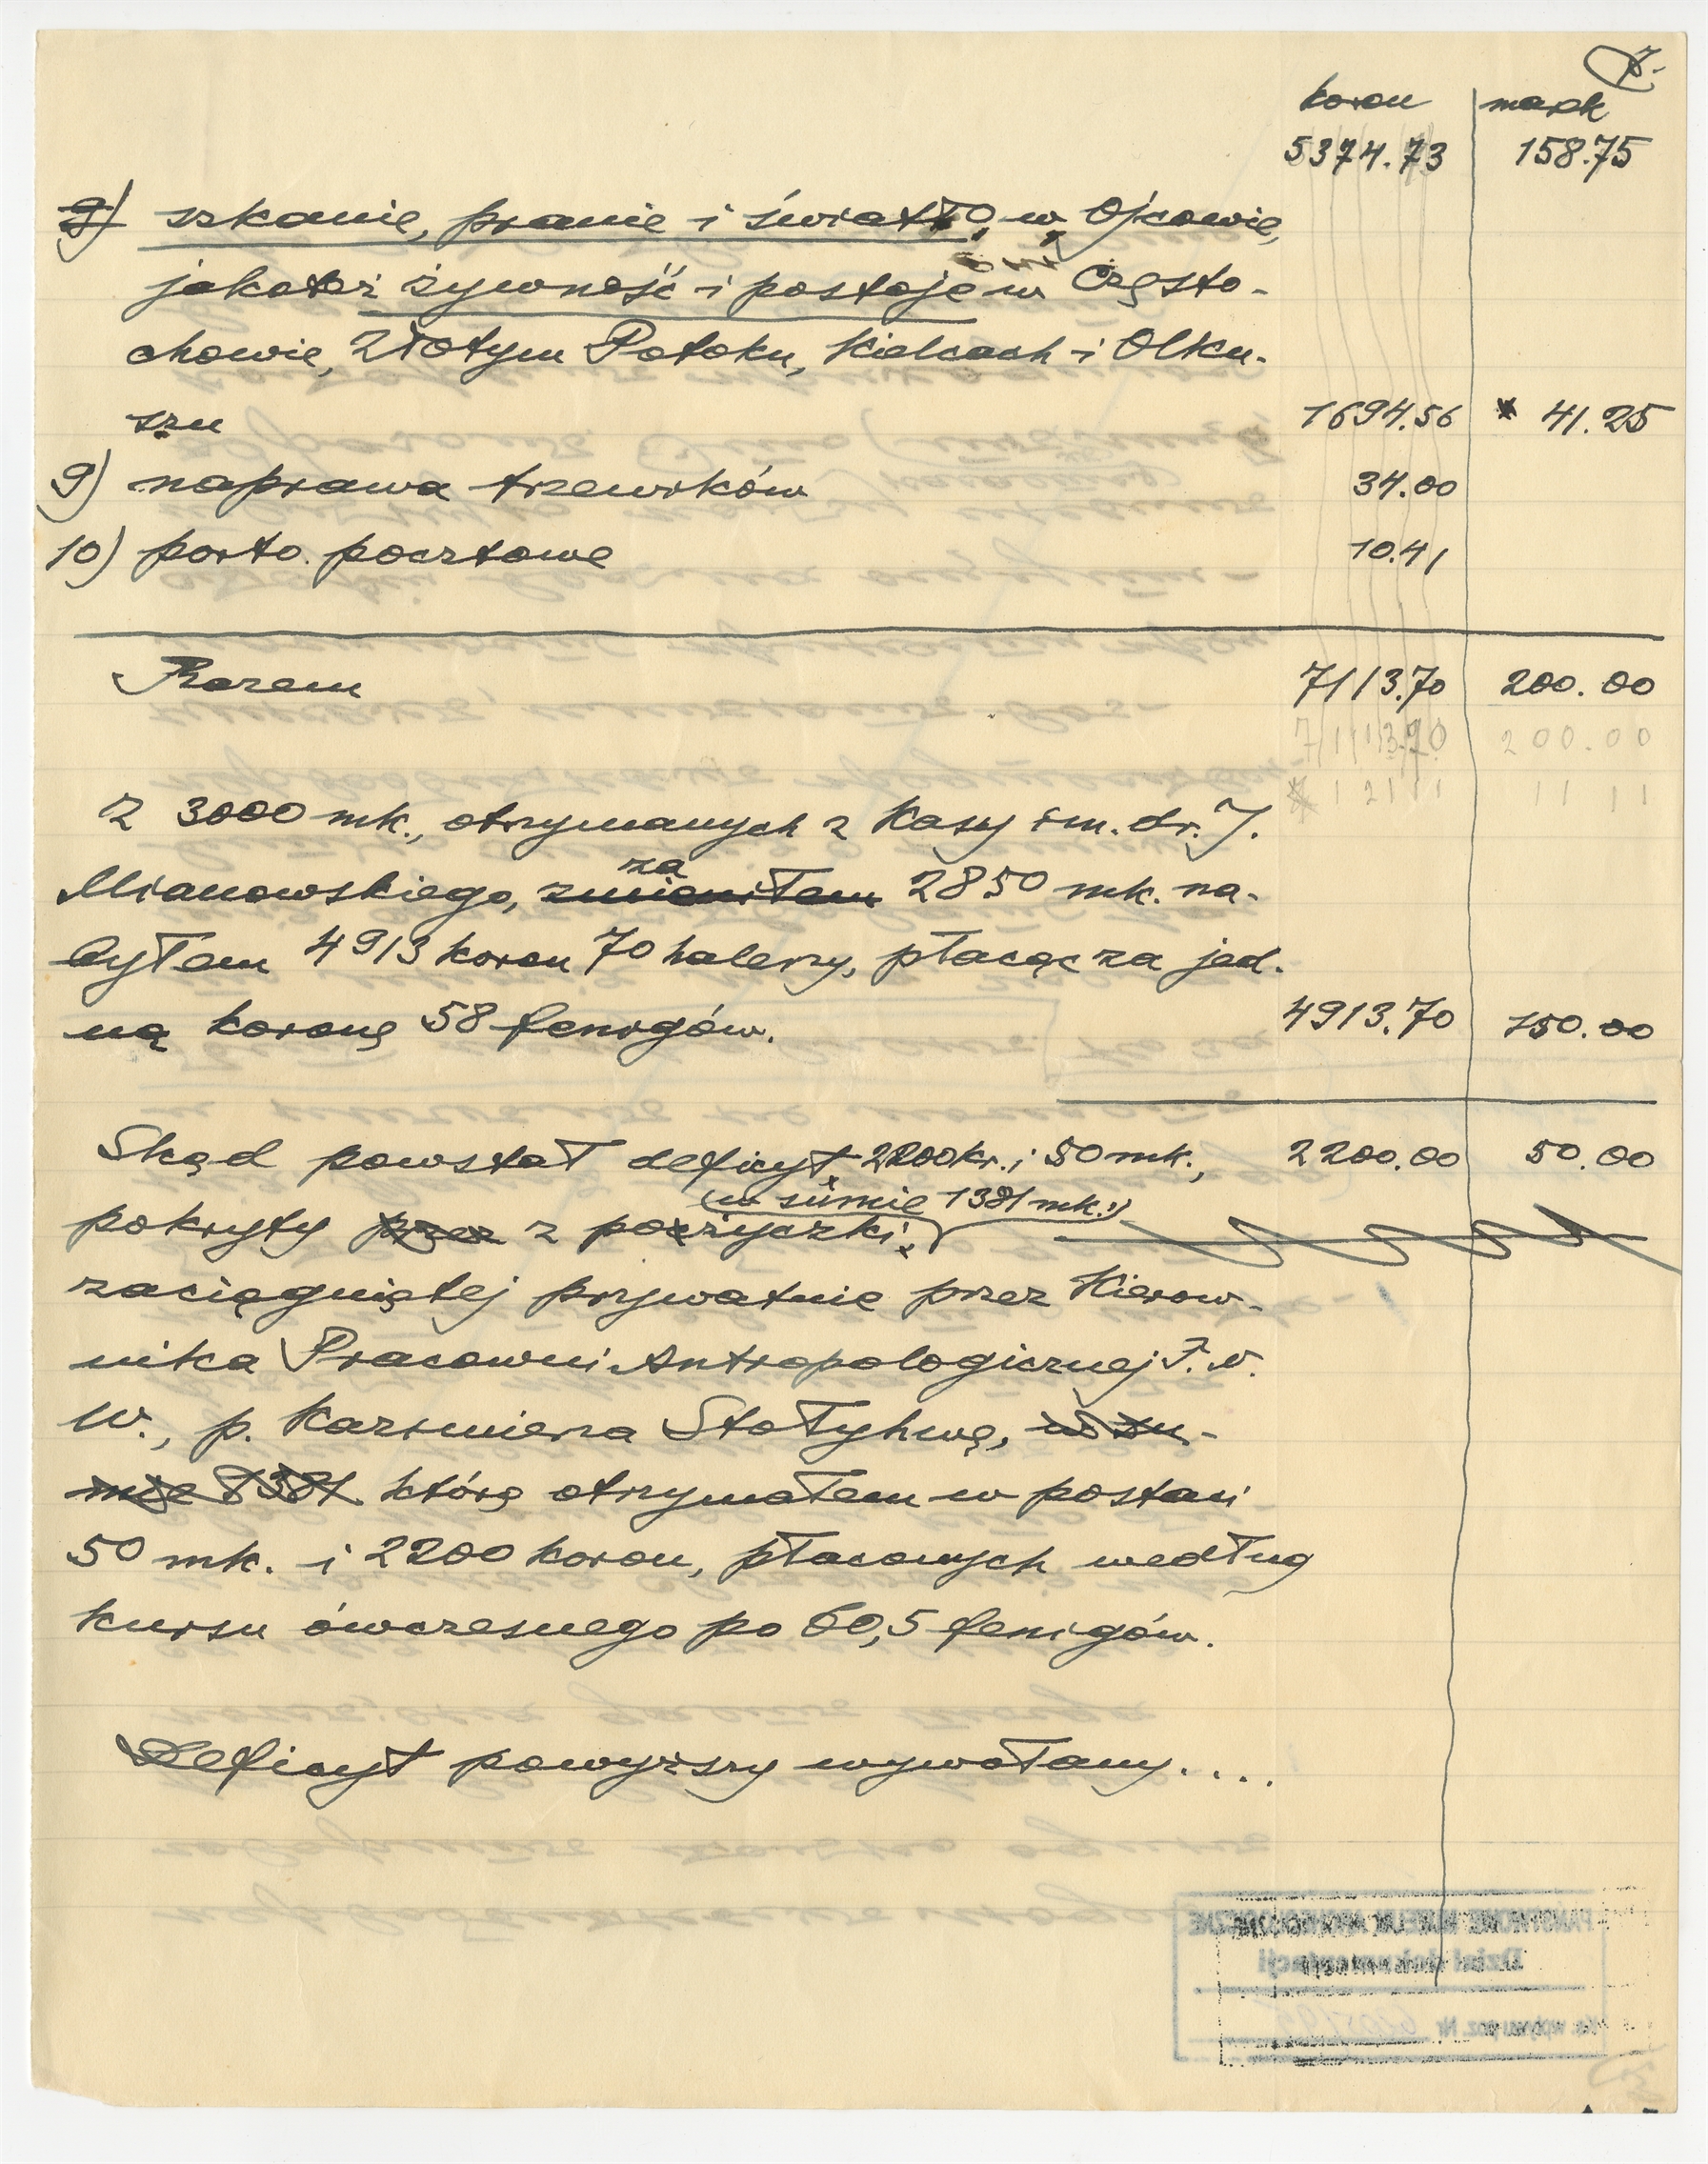 7.
koron mark
5374.73 158.75
9) szkanie, pranie i światło, w Ojcowie,
jakoteż żywność i postoje w Często-
chowie, Złotym Potoku, Kielcach i Olku-
szu 1694.56 41.25
9) naprawa trzewików 34.00
10) porto pocztowe 10.41
Razem 7113.70 200.00
7113.70 200.00
Z 3000 mk., otrzymanych z Kasy im. dr. J.
Mianowskiego, zmieniłem za 2850 mk. na-
byłem 4913 koron 70 halerzy, płacąc za jed-
ną koronę 58 fenigów. 4913.70 150.00
Skąd powstał deficyt 2200 kr. i 50 mk., 2200.00 50.00
(w sumie 1381 mk.)
pokryty przez z pożyczki,
zaciągniętej prywatnie przez Kierow-
nika Pracowni Antropologicznej T. N.
W., p. Kazimierza Stołyhwę, w su-
mie 1381 którą otrzymałem w postaci
50 mk. i 2200 koron, płaconych według
kursu ówczesnego po 60,5 fenigów.
Deficyt powyższy wywołany....
PAŃSTWOWE MUZEUM ARCHEOLOGICZNE
Dział dokumentacji
Ks. wpływu poz. Nr